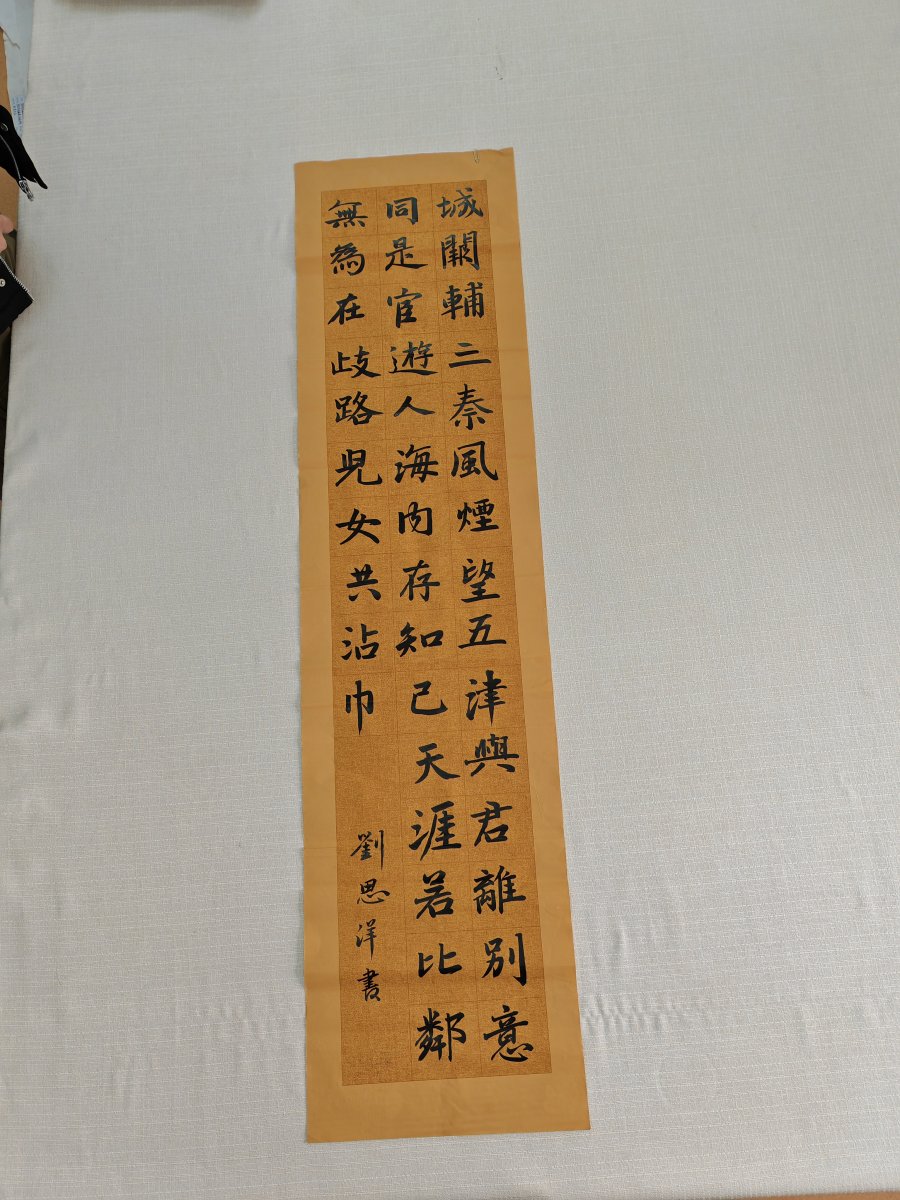 城闕輔三秦風煙望五津與君離別意
同是宦遊人海内存知己天涯若比鄰
無為在歧路児女共沾巾
劉思洋書